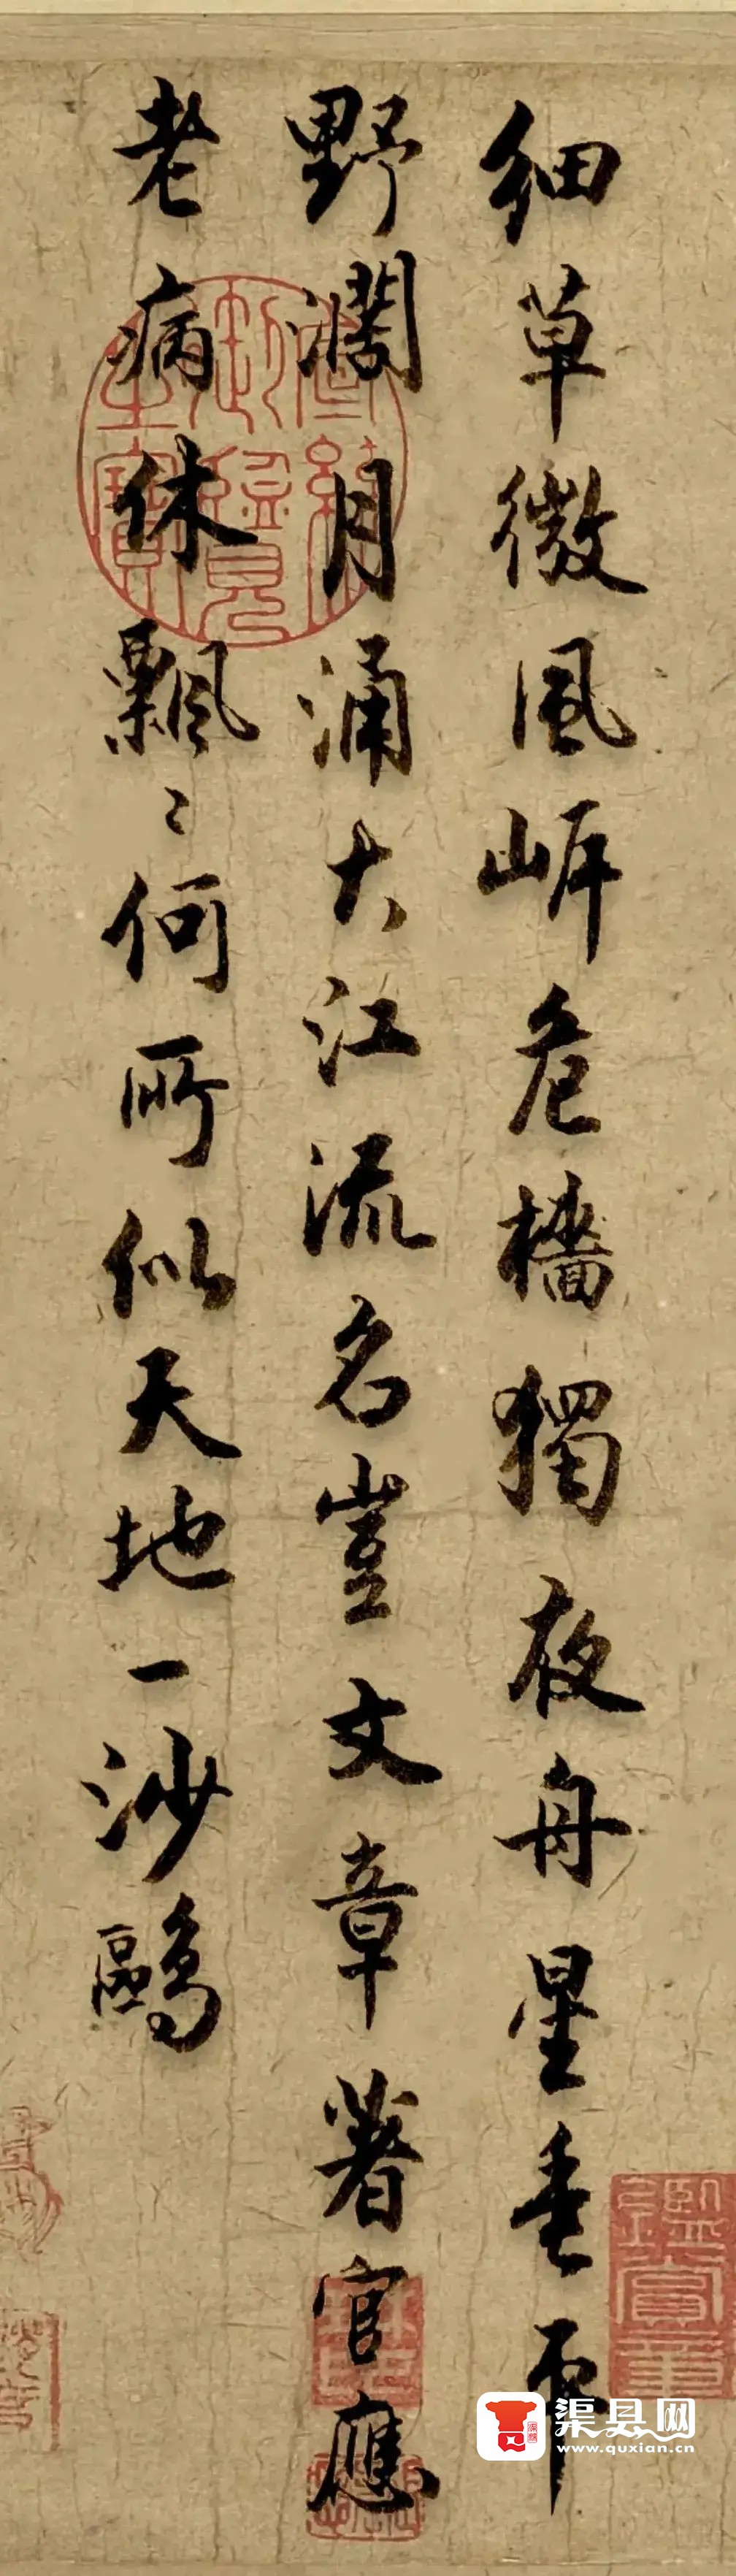 細草微風岸危檣獨夜舟星垂平
野濶月涌大江流名豈文章著官應
老病休飄〻何所似天地一沙鷗
渠县网
www.quxian.cn